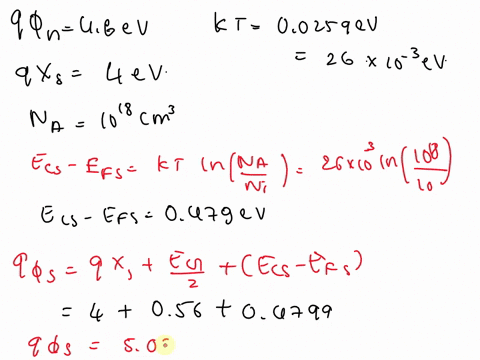 qΦn = 4.8eV
KT = 0.0259eV
= 26 × 10⁻³ eV.
qXs = 4eV.
NA = 10¹⁸ cm³
Ecs - EFs = KT ln(NA/Ni) = 26×10³ ln(10⁸/10)
Ecs - EFs = 0.479eV
qΦs = qXs + EG/2 + (Ecs - EFs)
= 4 + 0.56 + 0.4799
qΦs = 5.0